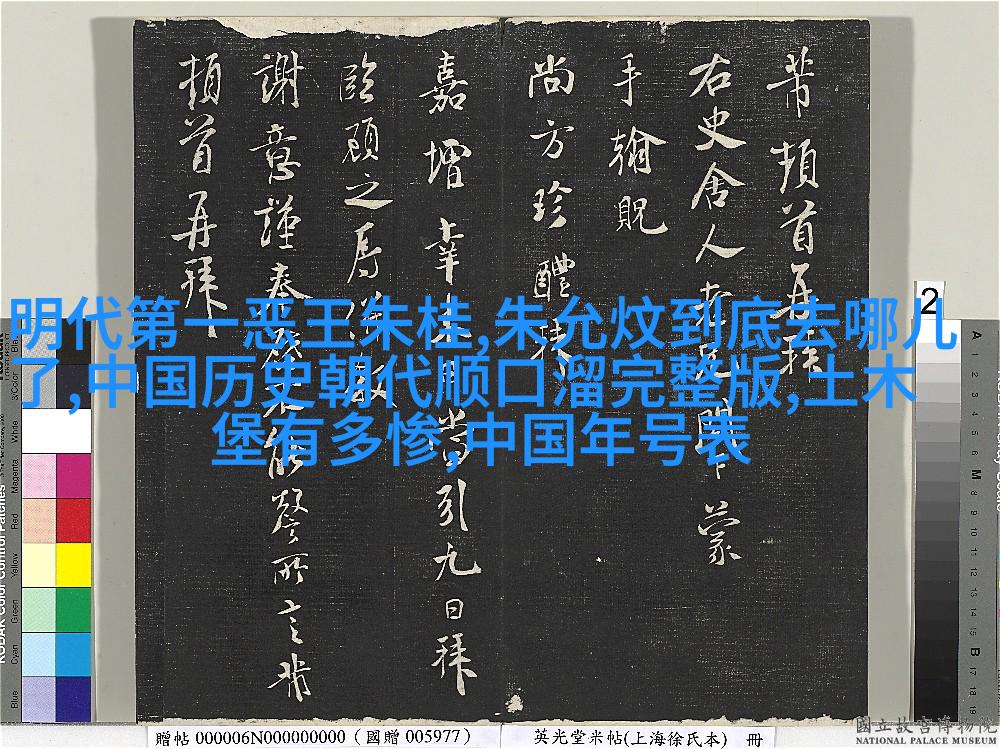 芾頓首再拜
右史舍人閤下蒙
手翰貺
尚方珍醴殊
嘉增幸尚引九日拜
臨顧之
謝意謹奉啓不能盡所言芾
頓首再拜
明代第一恶王朱桂,朱允炆到底去哪儿
了,中国历史朝代顺口溜完整版,土木
堡有多惨,中国年号表
2
贈帖 000006N000000000 (國贈 005977)
英光堂米帖(上海徐氏本) 冊
國立故宮博物院
NATIONAL PALACE MUSEUM
White
Magenta
Red
Yellow
Green
Cyan
Blue
A
M
B